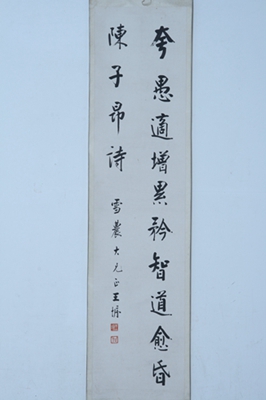 夸愚適增累矜智道愈昏
陳子昂詩
雪農大兄正王脩